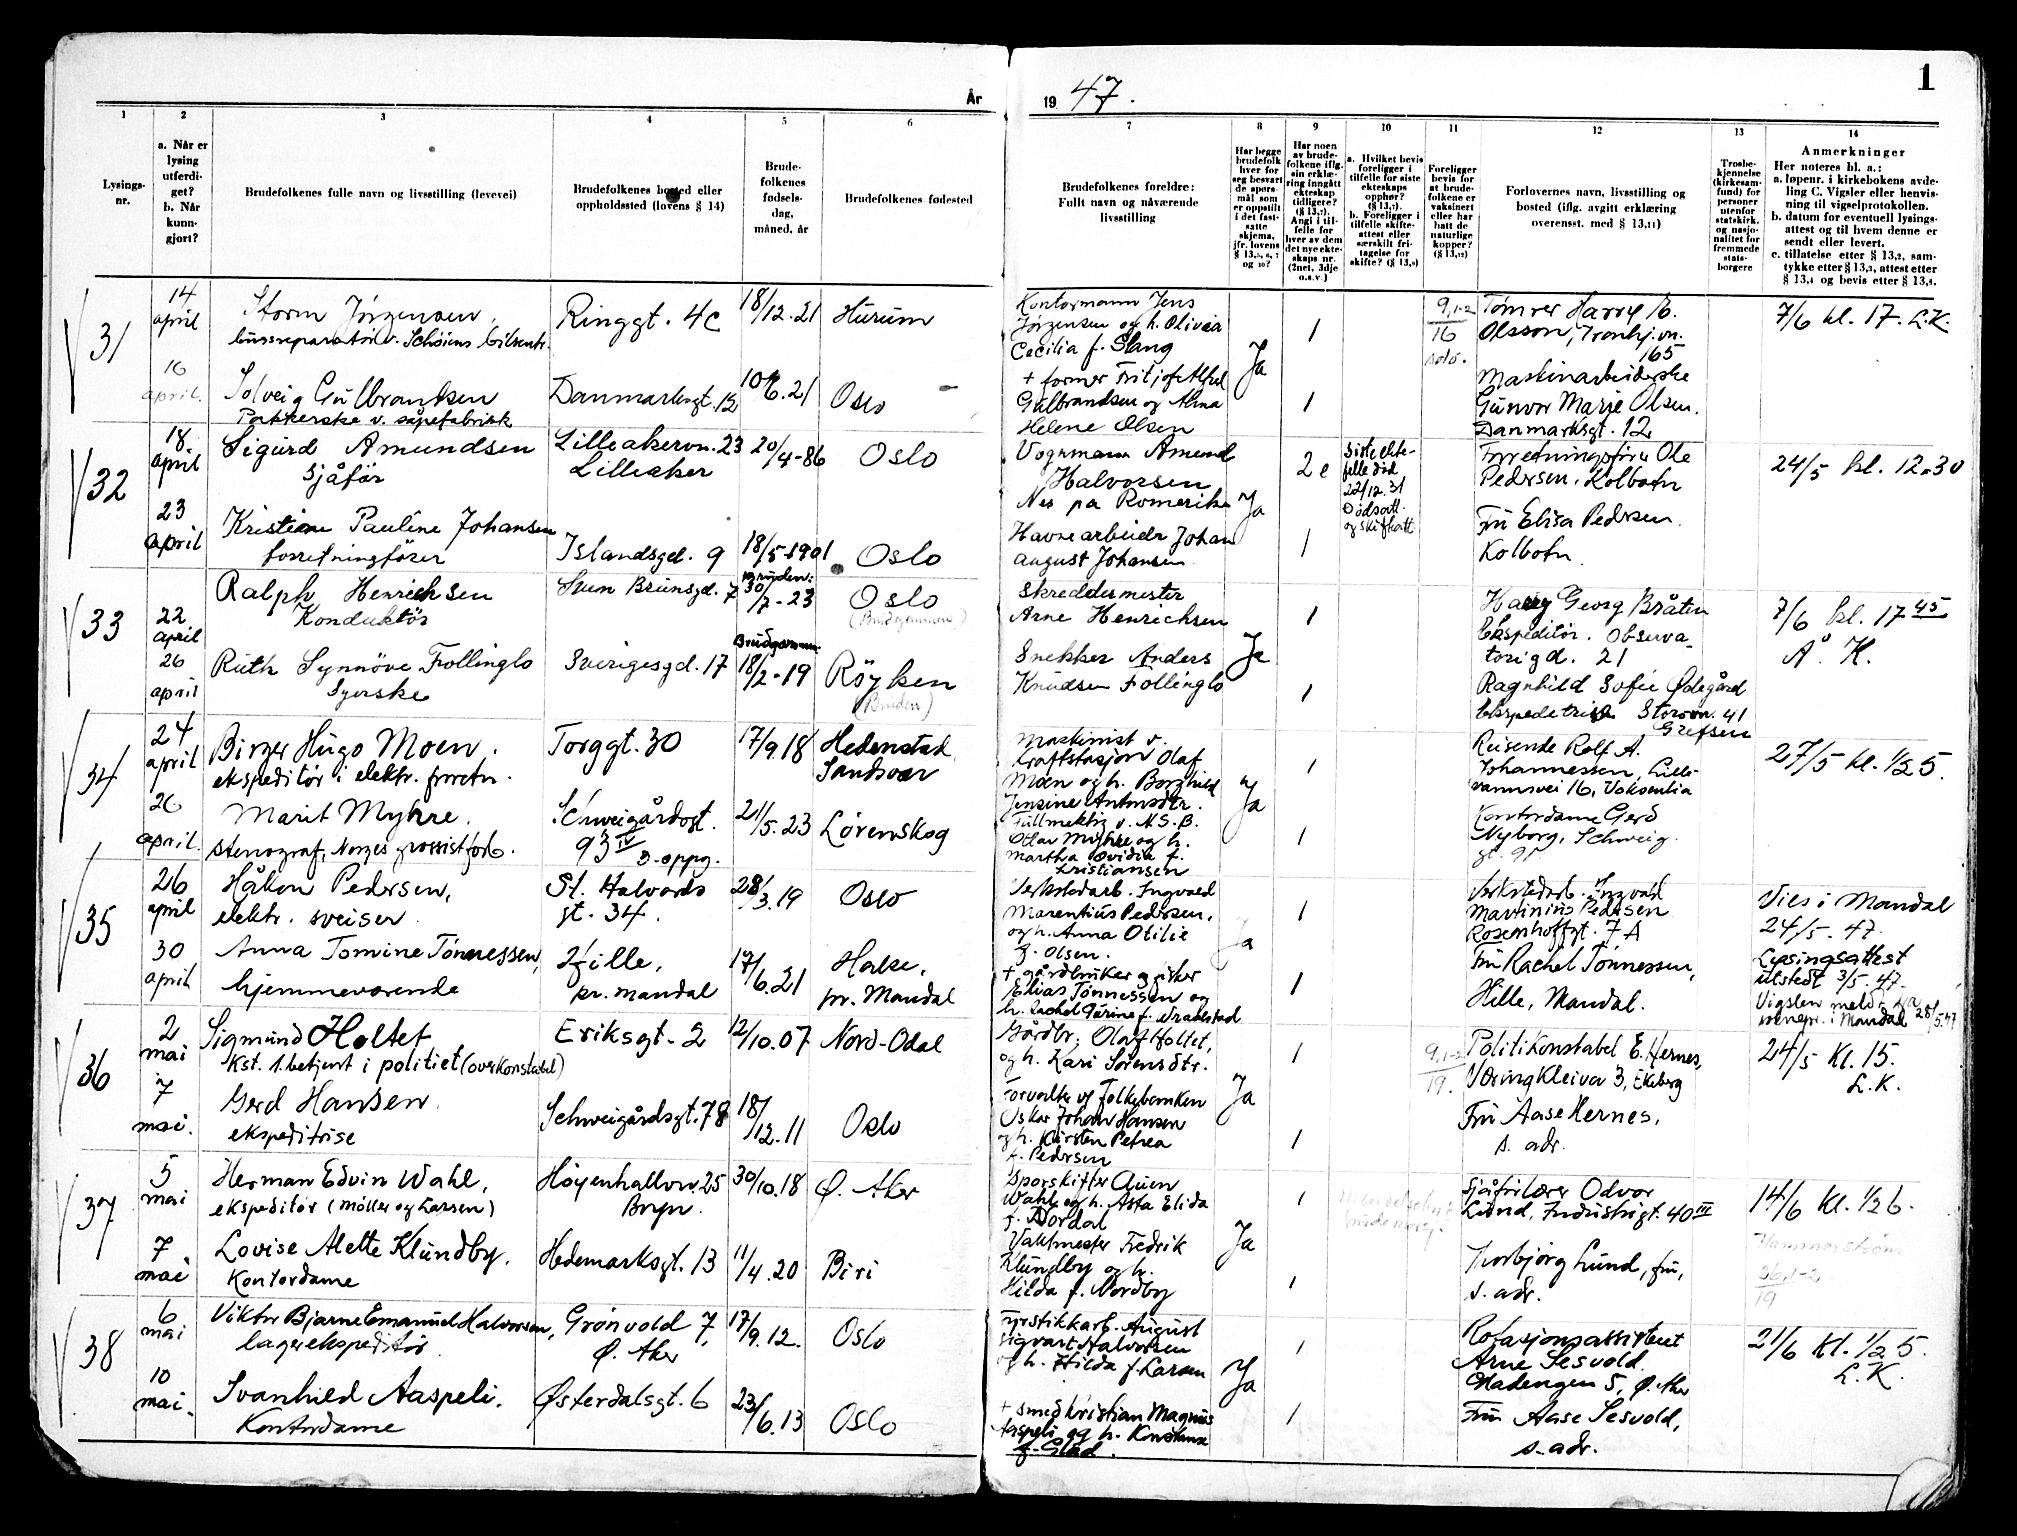 År
19 47.
1
1
2
3
4
5
6
7
8
9
10
11
12
13
14
Lysings-
nr.
a. Når er
lysing
utferdi-
get?
b. Når
kunn-
gjort?
Brudefolkenes fulle navn og livsstilling (levevei)
Brudefolkenes bosted eller
oppholdssted (lovens § 14)
Brude-
folkenes
fødsels-
dag,
måned, år
Brudefolkenes fødested
Brudefolkenes foreldre:
Fullt navn og nåværende
livsstilling
Har begge
brudefolk
hver for
seg besvart
de spørs-
mål som
er oppstilt
i det fast-
satte
skjema,
jfr. lovens
§ 13,5, 6, 7
og 10?
Har noen
av brude-
folkene iflg.
sin erklæ-
ring inngått
ekteskap
tidligere?
(§ 13,7).
Angi i til-
felle for
hver av dem
det nye ekte-
skaps nr.
(2net, 3dje
o.s.v.)
a. Hvilket bevis
foreligger i
tilfelle for siste
ekteskaps
opphør?
(§ 13,7).
b. Foreligger i
tilfelle skifte-
attest eller
særskilt fri-
tagelse for
skifte? (§ 13,8)
Foreligger
bevis for
at brude-
folkene er
vaksinert
eller har
hatt de
naturlige
kopper?
(§ 13,12)
Forlovernes navn, livsstilling og
bosted (iflg. avgitt erklæring
overensst. med § 13,11)
Trosbe-
kjennelse
(kirkesam-
fund) for
personer
utenfor
statskirk.
og nasjo-
nalitet for
fremmede
stats-
borgere
Anmerkninger
Her noteres bl. a.:
a. løpenr. i kirkebokens avde-
ling C. Vigsler eller henvis-
ning til vigselprotokollen.
b. datum for eventuell lysings-
attest og til hvem denne er
sendt eller levert.
c. tillatelse etter § 13,2, sam-
tykke etter § 13,3, attest etter
§ 13,4 og bevis etter § 13,5.
31
14
april
Storm Jörgensen,
bussreparatör v. Schöiens bilsentr.
Ringgt. 4c
18/12.21
Hurum
Kontormann Jens
Jørgensen og h. Olivia
Cecilia f. Slang
Ja
1
9,1-2
16
Tømrer Harry B.
Olsson, Tronhj.vn.
165
7/6 kl. 17. L.K.
16
april.
Solveig Gulbrandsen
Pakkerske v. såpefabrikk
Danmarksgt. 12
10/6.21
Oslo
+ former Fritjof Alfred
Gulbrandsen og Alma
Helene Olsen
1
Maskinarbeiderske
Gunvor Marie Olsen.
Danmarksgt. 12
32
18
april
Sigurd Amundsen
Sjåför
Lilleakervn. 23
Lilleaker
20/4-86
Oslo
Vognmann Amund
Halvorsen
Nes på Romerike
Ja
2 e
Siste ekte-
felle död
22/12.31
Dödsatt.
og skifteatt.
Forretningsförer Ole
Pedersen. Kolbotn
24/5 kl. 12.30
23
april
Kristine Pauline Johansen
forretningförer
Islandsgd. 9
18/5-1901
Oslo
Havnearbeider Johan
August Johansen
1
Fru Elisa Pedersen.
Kolbotn.
33
22
april
Ralph Henrichsen
Konduktör
Sven Brunsgd. 7
Bruden:
30/7-23
Oslo
(Brudgommen)
Skreddermester
Arne Henrichsen
Ja
1
Harry Georg Bråten
Ekspeditör. Observa-
torigd. 21
7/6 kl. 17 45
Å. K.
26
april
Ruth Synnöve Follinglo
Syerske
Sverigesgd. 17
Brudgommen
18/2-19
Röyken
(Bruden)
Snekker Anders
Knudsen Follinglo
1
Ragnhild Sofie Ødegård
Ekspeditrise Storovn. 41
Grefsen
34
24
april
Birger Hugo Moen.
ekspeditör i elektr. forretn.
Torggt. 30
17/9.18
Hedenstad
Sandsvær
Maskinist v.
Kraftstasjon Olaf
Moen og h. Borghild
Jensine Antonsdtr.
Ja
1
Reisende Rolf A.
Johannessen, Lille-
vannsvei 16, Voksenlia
27/5 kl. 1/2 5.
26
april.
Marit Myhre.
stenograf, Norges grossistforb.
Schweigårdsgt.
93 IV
3-oppg.
21/5.23
Lørenskog
Fullmektig v. N.S.B.
Ottar Myhre og h.
Martha Ovidia f.
Kristiansen
1
Kontordame Gerd
Nyborg, Schweig.
gt. 91
35
26
april
Håkon Pedersen,
elektr. sveiser
St. Halvards
gt. 34.
28/3.19
Oslo
Verkstedarb. Ingvald
Marentius Pedersen,
og h. Anna Otilie
f. Olsen.
Ja
1
Verkstedarb. Ingvald
Martinius Pedersen
Rosenhoffgt. 7 A
Vies i Mandal
24/5. 47.
30
april
Anna Tomine Tönnessen,
hjemmeværende
Hille,
pr. Mandal
17/6.21
Halse,
pr. Mandal
+ gårdbruker og fisker
Elias Tønnessen og
h. Rachel Gurine f.
1
Fru Rachel Tønnessen,
Hille, Mandal.
Lysingsattest
utstedt 3/5.47.
Vigslen meldt fra
sognepr. i Mandal 28/5.47
36
2
mai
Sigmund Holtet
Kst. 1. betjent i politiet (overkonstabel)
Eriksgt. 2
12/10.07
Nord-Odal
Gårdbr. Olaf Holtet,
og h. Kari Sørensdtr.
Ja
1
9,1-2
19.
Politikonstabel E. Hernes,
Væringkleiva 3, Ekeberg
24/5 Kl. 15.
L.K.
7
mai.
Gerd Hansen.
ekspeditrise
Schweigårdsgt. 78
18/12.11
Oslo
Forvalter v/ Folkebanken
Oskar Johan Hansen
og h. Kirsten Petrea
f. Pedersen
1
Fru Aase Hernes,
s. adr.
37
5
mai
Herman Edvin Wahl,
ekspeditör (Möller og Larsen)
Höyenhallvn. 25
Bryn.
30/10.18
Ø. Aker
Sporskifter Auen
Wahl og h. Asta Elida
f. Nordal
Ja
1
Sjåførlærer Odvar
Lund, Industrigt. 40 III
14/6 kl. 1/2 6.
Hammerström
36,1-2
19
7
mai
Lovise Alette Klundby.
Kontordame
Hedemarksgt. 13
11/4.20
Biri
Vaktmester Fredrik
Klundby og h.
Hilda f. Nordby
1
Torbjørg Lund, fru,
s. adr.
38
6
mai
Viktor Bjarne Emanuel Halvorsen,
lagerekspeditör
Grønvold 7,
Ø. Aker
17/9.12.
Oslo
Fyrstikkarb. August
Sigvart Halvorsen
og h. Hilda f. Larsen
Ja
1
Rotasjonsassistent
Arne Sesvold.
Madengen 5, Ø. Aker
21/6 Kl. 1/2 5.
L.K.
10
mai.
Svanhild Aaspeli.
Kontordame
Østerdalsgt. 6
23/6.13
Oslo
+ smed Kristian Magnus
Aaspeli og h. Konstanse
f. Glad.
1
Fru Aase Sesvold,
s. adr.